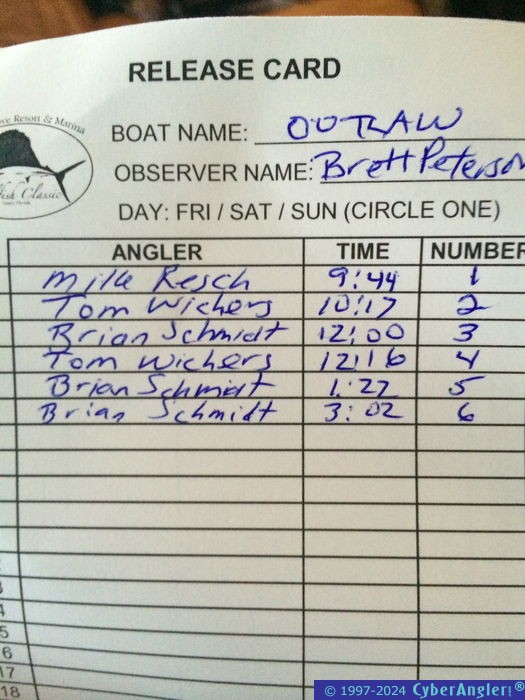 RELEASE CARD
ove Resort & Marina
fish Classic
BOAT NAME: OUTLAW
OBSERVER NAME: Brett Peterson
DAY: FRI / SAT / SUN (CIRCLE ONE)
ANGLER TIME NUMBER
Mike Resch 9:44 1
Tom Wichers 10:17 2
Brian Schmidt 12:00 3
Tom Wichers 12:16 4
Brian Schmidt 1:27 5
Brian Schmidt 3:02 6
3
4
5
6
17
18
© 1997-2024 CyberAngler!®